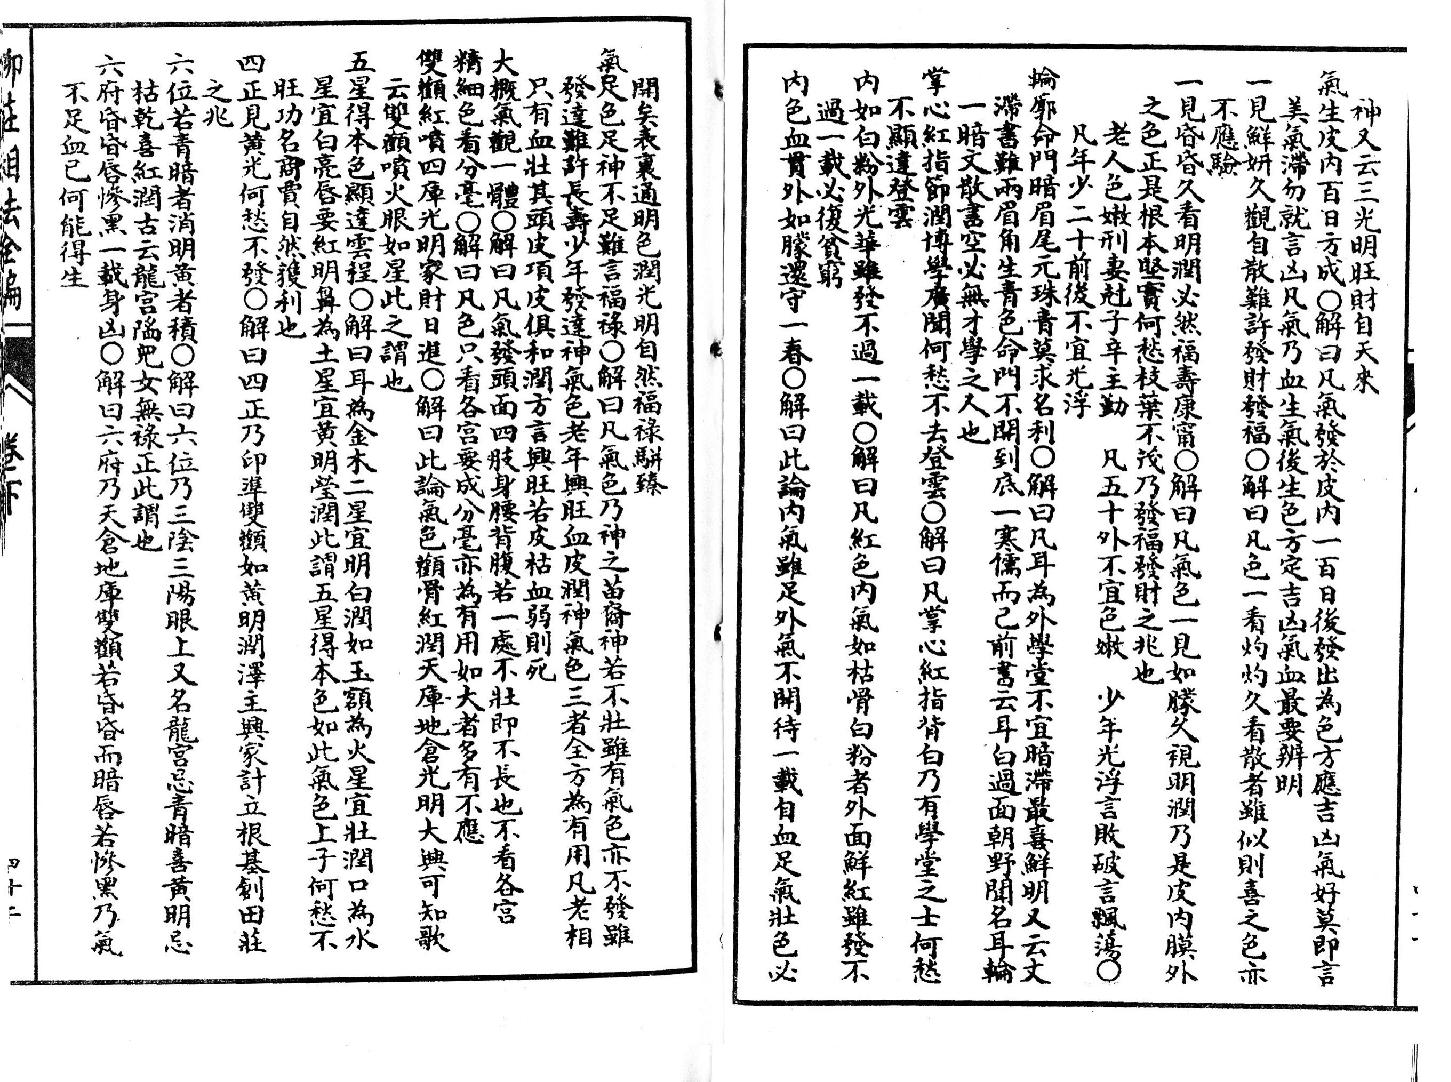 神又云三光明旺財自天來
氣生皮內百日方成○解曰凡氣發於皮內一百日後發出為色方應吉凶氣好莫即言
美氣滯勿就言凶凡氣乃血生氣後生色方定吉凶氣血最要辨明
一見鮮妍久觀自散難許發財發福○解曰凡色一看灼灼久看散者雖似則喜之色亦
不應驗
一見昏昏久看明潤必然福壽康甯○解曰凡氣色一見如朦久視明潤乃是皮內膜外
之色正是根本堅實何愁枝葉不茂乃發福發財之兆也
老人色嫩刑妻尅子辛主勤 凡五十外不宜色嫩 少年光浮言敗破言飄蕩○
凡年少二十前後不宜光浮
輪廓命門暗眉尾元珠青莫求名利○解曰凡耳為外學堂不宜暗滯最喜鮮明又云丈
滯書雖兩眉角生青色命門不開到底一寒儒而已前書云耳白過面朝野聞名耳輪
一暗文散書空必無才學之人也
掌心紅指節潤博學廣聞何愁不去登雲○解曰凡掌心紅指背白乃有學堂之士何愁
不顯達登雲
內如白粉外光華雖發不過一載○解曰凡紅色內氣如枯骨白粉者外面鮮紅雖發不
過一載必復貧窮
內色血貫外如朦還守一春○解曰此論內氣雖足外氣不開待一載自血足氣壯色必
開矣表裏通明色潤光明自然福祿駢臻
氣足色足神不足難言福祿○解曰凡氣色乃神之苗裔神若不壯雖有氣色亦不發雖
發達難許長壽少年發達神氣色老年興旺血皮潤神氣色三者全方為有用凡老相
只有血壯其頭皮項皮俱和潤方言興旺若皮枯血弱則死
大概氣觀一體○解曰凡氣發頭面四肢身腰背腹若一處不壯即不長也不看各宮
精細色看分毫○解曰凡色只看各宮要成分毫亦為有用如大者多有不應
雙顴紅噴四庫光明家財日進○解曰此論氣色顴骨紅潤天庫地倉光明大興可知歌
云雙顴噴火眼如星此之謂也
五星得本色顯達雲程○解曰耳為金木二星宜明白潤如玉額為火星宜壯潤口為水
星宜白亮唇要紅明鼻為土星宜黃明瑩潤此謂五星得本色如此氣色上子何愁不
旺功名商賈自然獲利也
四正見黃光何愁不發○解曰四正乃印準雙顴如黃明潤澤主興家計立根基創田莊
之兆
六位若青暗者消明黃者積○解曰六位乃三陰三陽眼上又名龍宮忌青暗喜黃明忌
枯乾喜紅潤古云龍宮陷兒女無祿正此謂也
六府昏昏唇慘黑一載身凶○解曰六府乃天倉地庫雙顴若昏昏而暗唇若慘黑乃氣
不足血已何能得生
柳莊相法全編
卷下
四十二